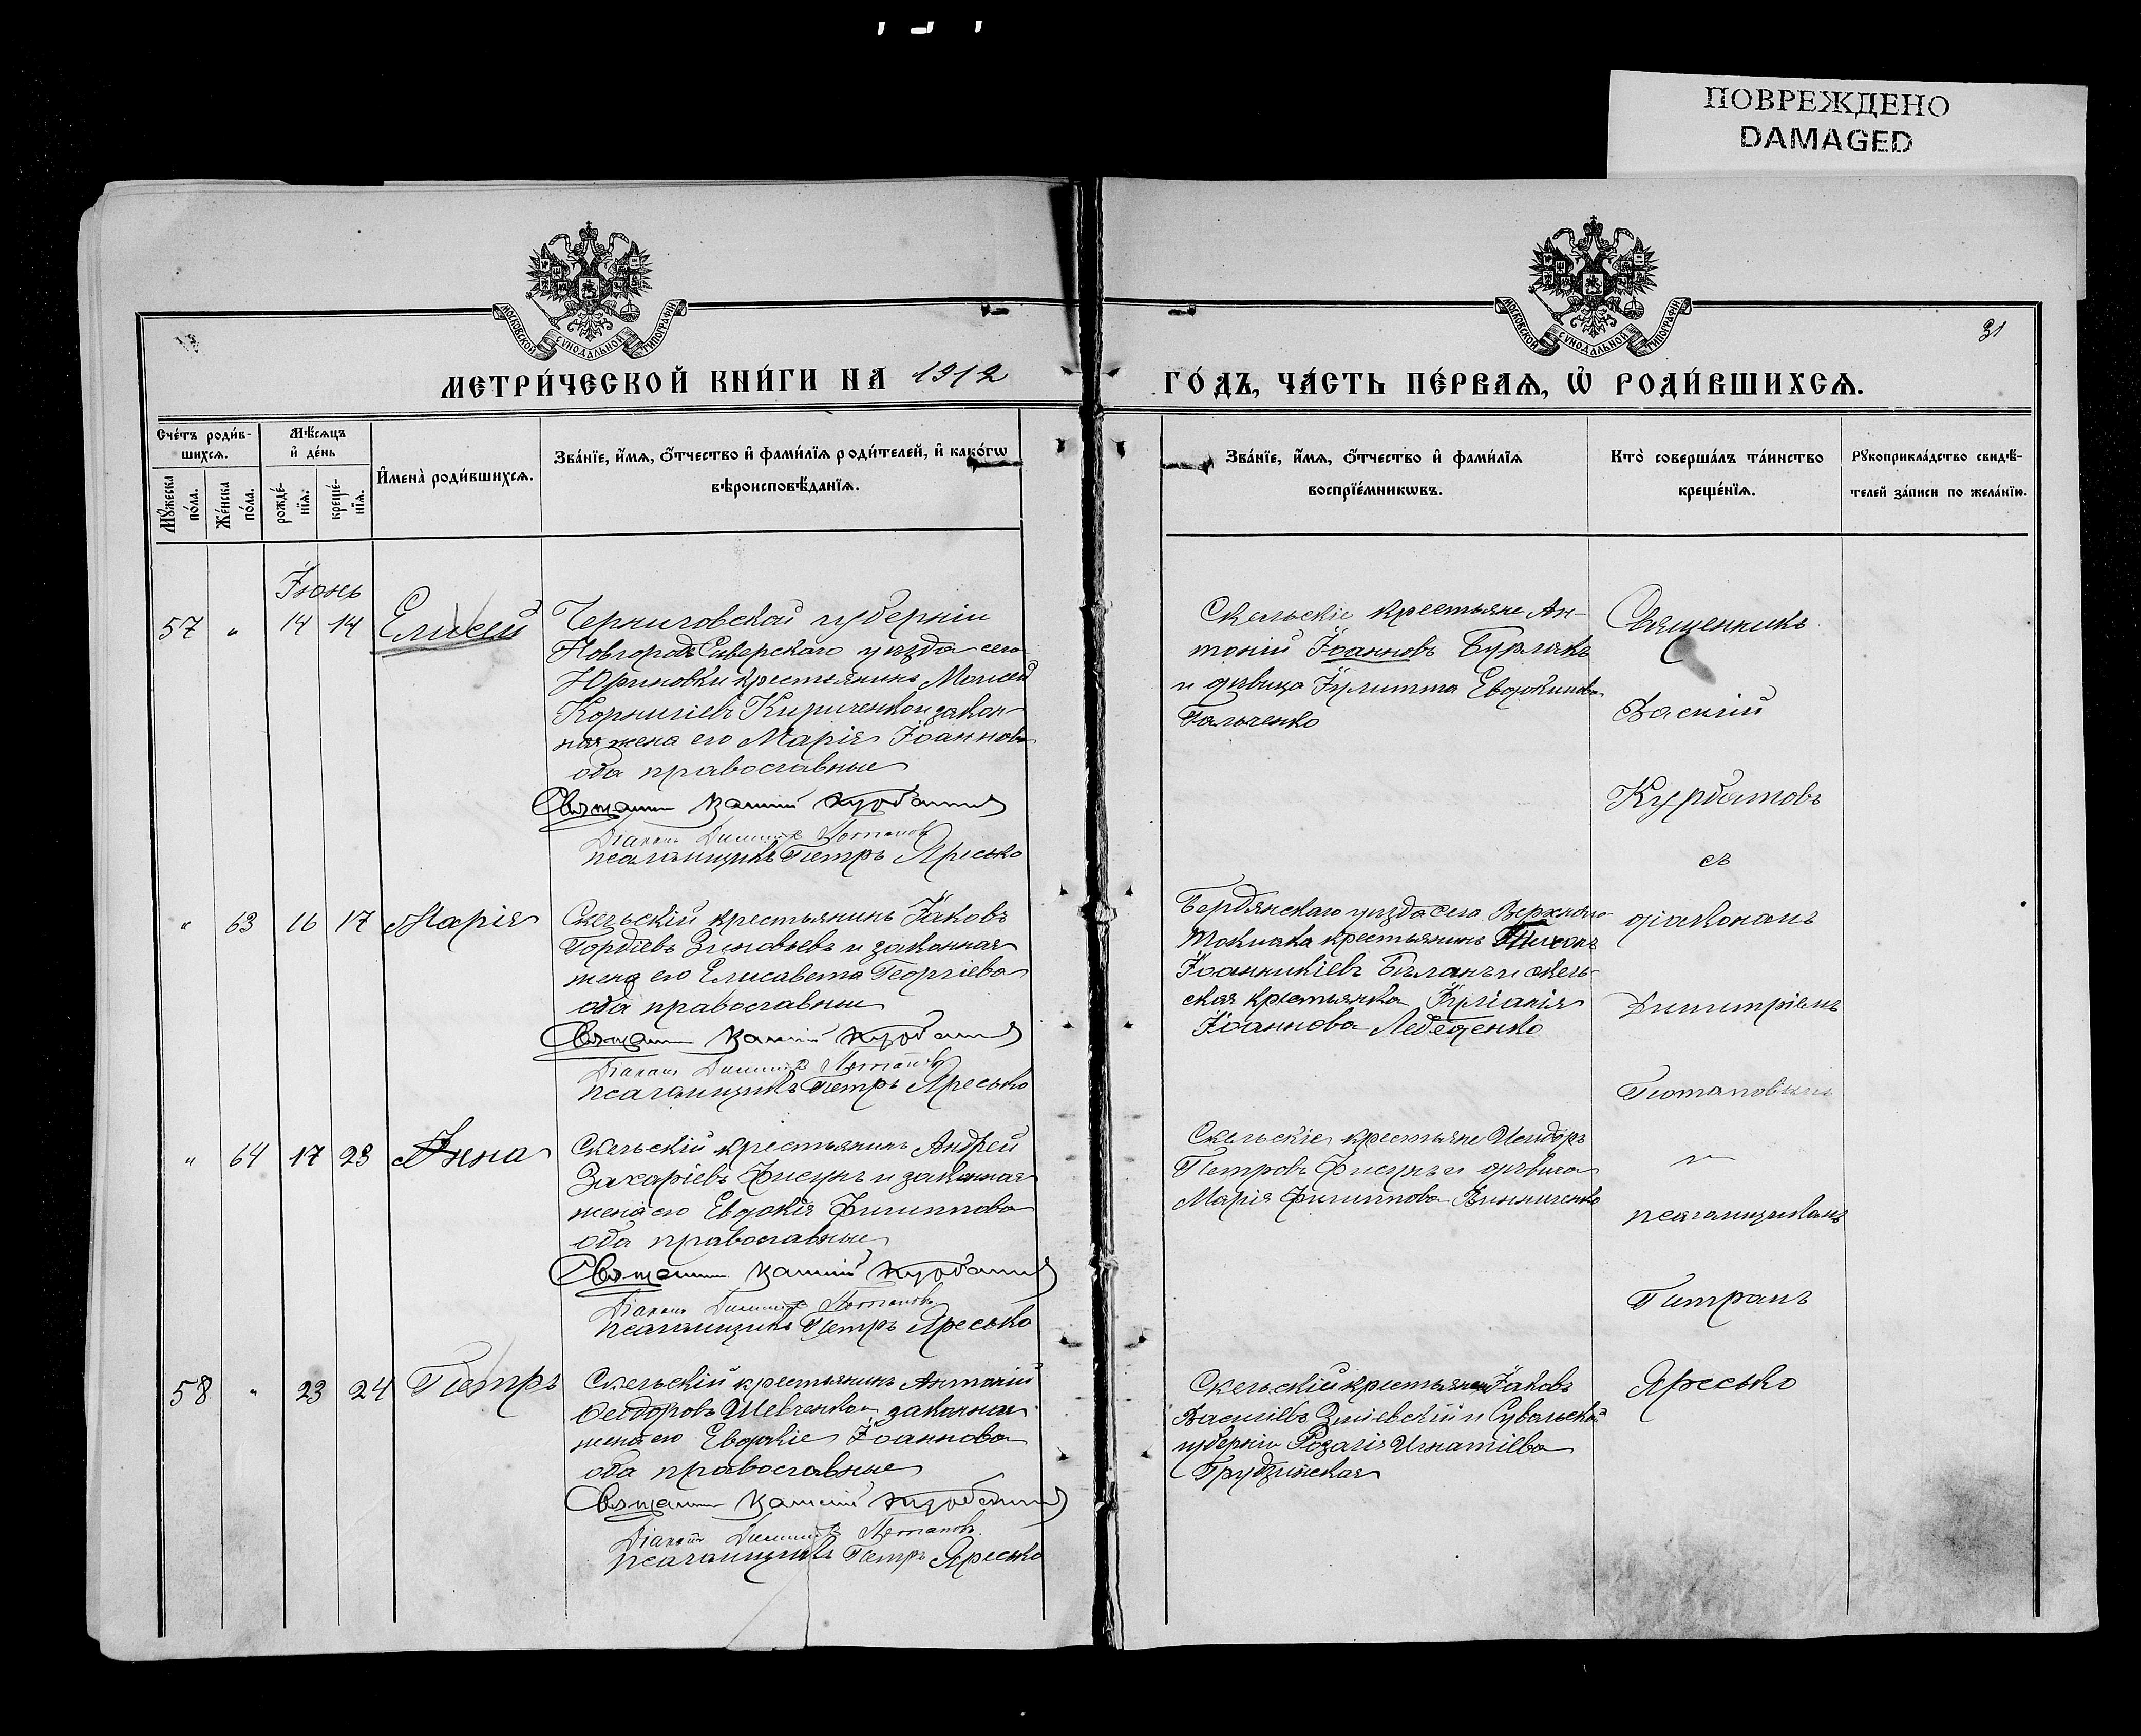 ПОВРЕЖДЕНО
DAMAGED
МОСКОВСКОЙ СѴНОДАЛЬНОЙ ТИПОГРАФІИ
МОСКОВСКОЙ СѴНОДАЛЬНОЙ ТИПОГРАФІИ
31
МЕТРИ́ЧЕСКОЙ КНИ́ГИ НА 1912
ГО́ДЪ, ЧА́СТЬ ПЕ́РВАѦ, Ѡ҆ РОДИ́ВШИХСѦ.
Сче́тъ роди́в-
шихсѧ.
Мꙋ́жеска по́ла.
Же́нска по́ла.
Мѣ́сѧцъ
и҆ де́нь
рожде́-
нїѧ.
креще́-
нїѧ.
И҆мена̀ роди́вшихсѧ.
Зва́нїе, и҆́мѧ, ѻ҆́тчество и҆ фами́лїѧ роди́телей, и҆ како́гѡ
вѣроисповѣ́данїѧ.
Зва́нїе, и҆́мѧ, ѻ҆́тчество и҆ фами́лїѧ
воспрїе́мникѡвъ.
Кто̀ соверша́лъ та́инство
креще́нїѧ.
Рꙋкоприкла́дство свидѣ́-
телей за́писи по жела́нїю.
Іюнь
57 " 14 14 Елисей
Черниговской губерніи
Новгородъ Сиверскаго уѣзда села
Юриновки крестьянинъ Моисей
Корниліевъ Кириченко и закон-
ная жена его Марія Іоаннова
оба православные
Священн Василій Курбатов
Діаконъ Димитрій Потаповъ
псаломщикъ Петръ Яресько
Скельскіе крестьяне Ан-
тоній Іоанновъ Бурлакъ
и дѣвица Іулитта Евдокимова
Гальченко
" 63 16 17 Марія
Скельскій крестьянинъ Іаковъ
Гордіевъ Зиновьевъ и законная
жена его Елисавета Георгіева
оба православные
Священн Василій Курбатов
Діаконъ Димитрій Потаповъ
псаломщикъ Петръ Яресько
Бердянскаго уѣзда села Верхняго
Токмака крестьянинъ Тихонъ
Іоанникіевъ Бѣланъ и скель-
ская крестьянка Іуліанія
Іоаннова Лебеденко
" 64 17 23 Анна
Скельскій крестьянинъ Андрей
Захаріевъ Фисунъ и законная
жена его Евдокія Филиппова
оба православные
Священн Василій Курбатов
Діаконъ Димитрій Потаповъ
псаломщикъ Петръ Яресько
Скельскіе крестьяне Исидоръ
Петровъ Фисунъ и дѣвица
Марія Филиппова Винниченко
58 " 23 24 Петръ
Скельскій крестьянинъ Антоній
Ѳеодоровъ Шевченко и законная
жена его Евдокіе Іоаннова
оба православные
Священн Василій Курбатов
Діаконъ Димитрій Потаповъ
псаломщикъ Петръ Яресько
Скельскій крестьянинъ Іаковъ
Василіевъ Зміевскій и Сувалской
губерніи Розалія Игнатіева
Грудзинская
Священникъ
Василій
Курбатовъ
съ
діакономъ
Димитріемъ
Потаповымъ
и
псаломщикомъ
Петромъ
Яресько